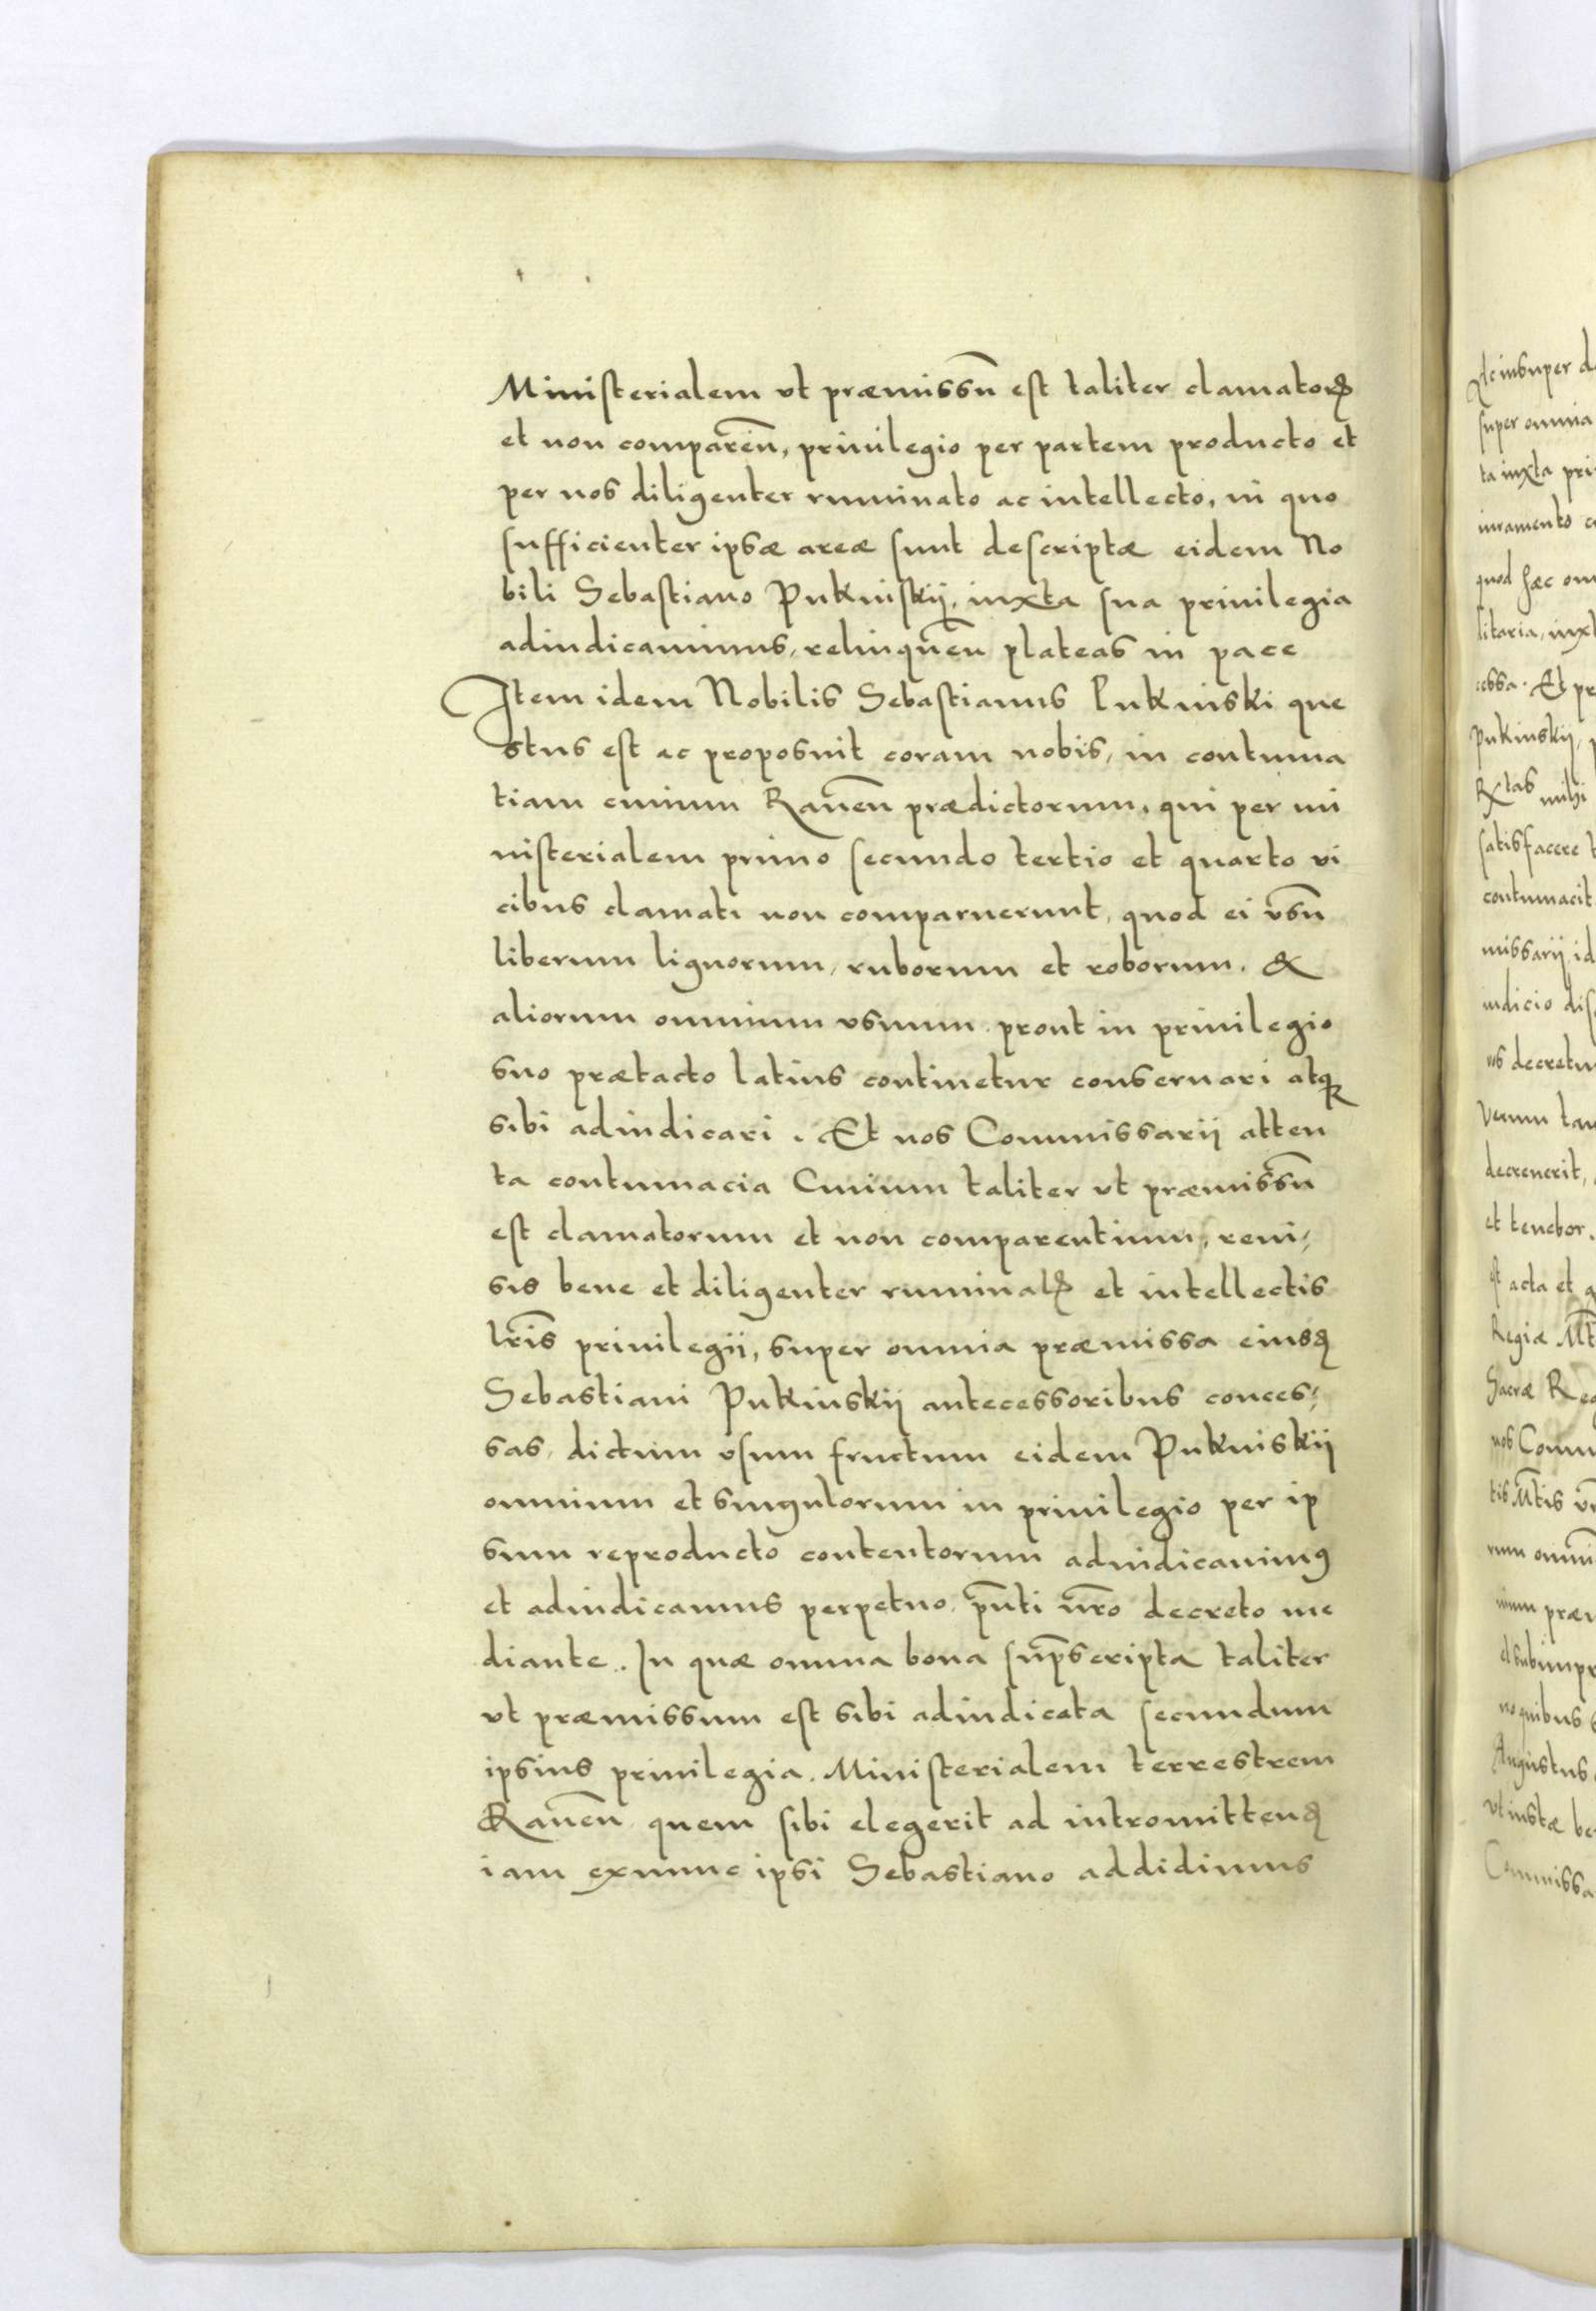 Ministerialem vt præmissū est taliter clamatorꝝ
et non compareñ, priuilegio per partem producto et
per nos diligenter ruminato ac intellecto, in quo
sufficienter ipsæ areæ sunt descriptæ eidem No
bili Sebastiano Pukinskij, iuxta sua priuilegia
adiudicauimus, relinqueñ plateas in pace
Item idem Nobilis Sebastianus Pukinski que
stus est ac proposuit coram nobis, in contuma
tiam ciuium Raueñ prædictorum, qui per mi
nisterialem primo secundo tertio et quarto vi
cibus clamati non comparuerunt, quod ei vsū
liberum lignorum, ruborum et roborum, &
aliorum omnium vsuum prout in priuilegio
suo prætacto latius continetur conseruari atqꝫ
sibi adiudicari. Et nos Commissarij atten
ta contumacia Ciuium taliter vt præmissū
est clamatorum et non comparentium, reui,
sis bene et diligenter ruminatꝭ et intellectis
lr̃is priuilegii, super omnia præmissa eiusꝺ
Sebastiani Pukinskij antecessoribus conces,
sas, dictum vsum fructum eidem Pukinskij
omnium et singulorum in priuilegio per ip
sum reproducto contentorum adiudicauimꝰ
et adiudicamus perpetuo, pñti nr̃o decreto me
diante. In quæ omnia bona sup̄scripta taliter
vt præmissum est sibi adiudicata secundum
ipsius priuilegia. Ministerialem terrestrem
Raueñ quem sibi elegerit ad intromittenꝺ
iam exnunc ipsi Sebastiano addidimus
Ac insuper
super omnia
ta iuxta pri
iuramento
quod hæc
litaria, iuxt
cessa. Et
Pukinskij,
mihi
satisfacere
contumacit
missarij id
iudicio
decretu
Verum
decreuerit,
et tenebor.
acta et
Regiæ
Sacræ
nos
rum
quibus
Augustus
vt iustæ
Commissa